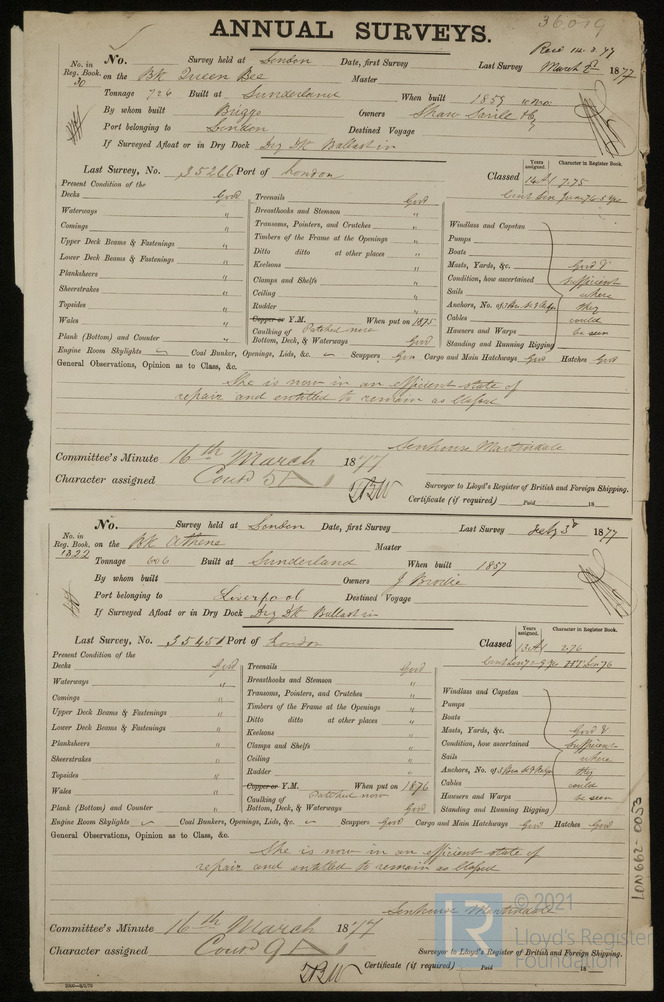 36019
ANNUAL SURVEYS.
No. in Reg. Book. 30
No. Survey held at London Date, first Survey Last Survey March 8th 1877
on the Bk Queen Bee Master
Tonnage 726 Built at Sunderland When built 1859
By whom built Briggs Owners Shaw Savill & Co
Port belonging to London Destined Voyage
If Surveyed Afloat or in Dry Dock Dry Dk Ballast in
Last Survey, No. 35266 Port of London Classed
Years assigned. Character in Register Book.
14 A1 7.75
Present Condition of the
Decks Good Treenails Good
Waterways " Breasthooks and Stemson " Windlass and Capstan
Comings " Transoms, Pointers, and Crutches " Pumps
Upper Deck Beams & Fastenings " Timbers of the Frame at the Openings " Boats
Lower Deck Beams & Fastenings " Ditto ditto at other places " Masts, Yards, &c. Good &
Planksheers " Keelsons " Condition, how ascertained sufficient
Sheerstrakes " Clamps and Shelfs " Sails where
Topsides " Ceiling " Anchors, No. of they
Wales " Rudder " Cables could
Plank (Bottom) and Counter " Copper or Y.M. When put on 1875 Hawsers and Warps be seen
Caulking of Bottom, Deck, & Waterways Patched now Good Standing and Running Rigging
Engine Room Skylights Coal Bunker, Openings, Lids, &c. Scuppers Good Cargo and Main Hatchways Good Hatches Good
General Observations, Opinion as to Class, &c.
She is now in an efficient state of
repair and entitled to remain as classed
Senhouse Martindale
Committee's Minute 16th March 1877
Character assigned Contd 5
Surveyor to Lloyd's Register of British and Foreign Shipping.
Certificate (if required) Paid 18
No. in Reg. Book. 1322
No. Survey held at London Date, first Survey Last Survey Feby 3d 1877
on the Bk Athene Master
Tonnage 646 Built at Sunderland When built 1857
By whom built Owners J Brodie
Port belonging to Liverpool Destined Voyage
If Surveyed Afloat or in Dry Dock Dry Dk Ballast in
Last Survey, No. 35451 Port of London Classed
Years assigned. Character in Register Book.
13 A1 2.76
Present Condition of the
Decks Good Treenails Good
Waterways " Breasthooks and Stemson " Windlass and Capstan
Comings " Transoms, Pointers, and Crutches " Pumps
Upper Deck Beams & Fastenings " Timbers of the Frame at the Openings " Boats
Lower Deck Beams & Fastenings " Ditto ditto at other places " Masts, Yards, &c. Good &
Planksheers " Keelsons " Condition, how ascertained sufficient
Sheerstrakes " Clamps and Shelfs " Sails where
Topsides " Ceiling " Anchors, No. of they
Wales " Rudder " Cables could
Plank (Bottom) and Counter " Copper or Y.M. When put on 1876 Hawsers and Warps be seen
Caulking of Bottom, Deck, & Waterways Patched now Good Standing and Running Rigging
Engine Room Skylights Coal Bunkers, Openings, Lids, &c. Scuppers Good Cargo and Main Hatchways Good Hatches Good
General Observations, Opinion as to Class, &c.
She is now in an efficient state of
repair and entitled to remain as classed
Senhouse Martindale
Committee's Minute 16th March 1877
Character assigned Contd 9
Surveyor to Lloyd's Register of British and Foreign Shipping.
Certificate (if required) Paid 18
LON662-0053
© 2021
LR
Lloyd's Register
Foundation